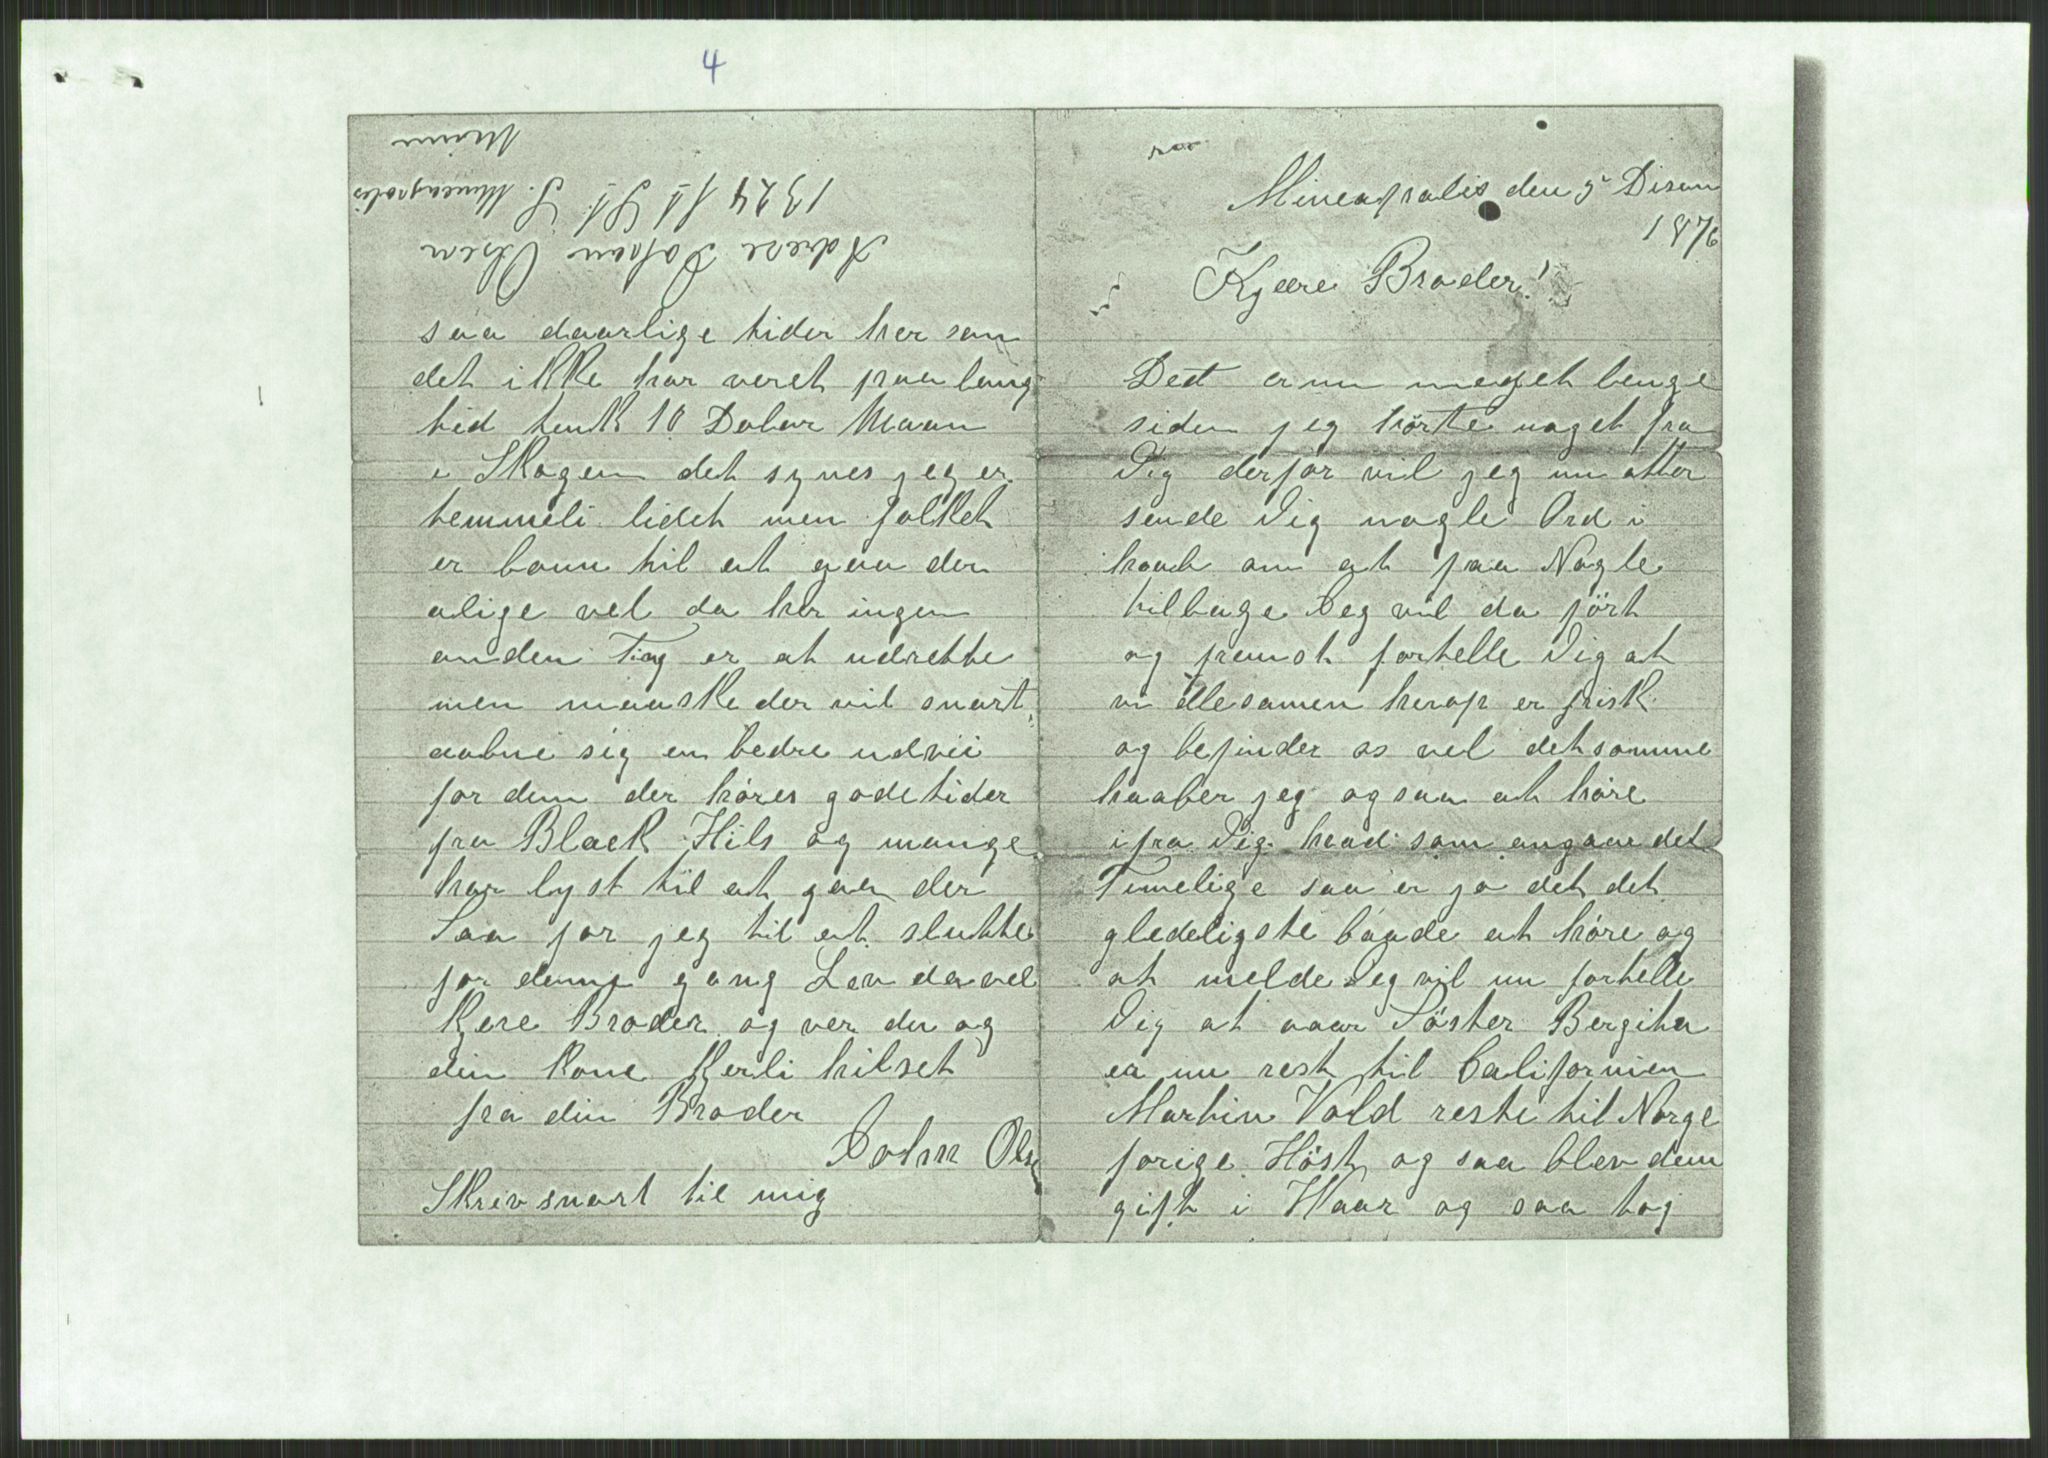 4
Mineapralis den 5 Disem
1876
Kjære Broder!
Det er nu meget lenge
siden jeg hörte noget fra
Dig derfor vil jeg nu atter
sende Dig nogle Ord i
haab om at faa Nogle
tilbage Jeg vil da först
og fremst fortelle Dig at
vi allesamen herop er frisk
og befinder os vel det samme
haaber jeg ogsaa at höre
ifra Dig hvad som angaar det
Timelige saa er jo det det
gledeligste baade at höre og
at melde Jeg vil nu fortelle
Dig at vaar Söster Bergita
er nu rest til Californien
Martin Vold reste til Norge
forige Höst og saa blev dem
gift i Vaar og saa tog
saa daarlige tider her som
det ikke har veret paa lang
tid tenk 10 Dolar Maan
i Skogen det synes jeg er
temmeli lidet men folket
er baun til at gaa der
alige vel da her ingen
anden Ting er at udrette
men maaske der vil snart
aabne sig en bedre udvii
for dem der höres gode tider
fra Black Hils og mange
har lyst til at gaa der
Saa faar jeg til at slutte
for denne gang Lev da vel
Kjere Broder og ver du og
din Kone Kjerli hilset
fra din Broder
John Olsen
Skriv snart til mig
Adrese Johan Olsen
1324 1st St. S. Mineapolis
Minn